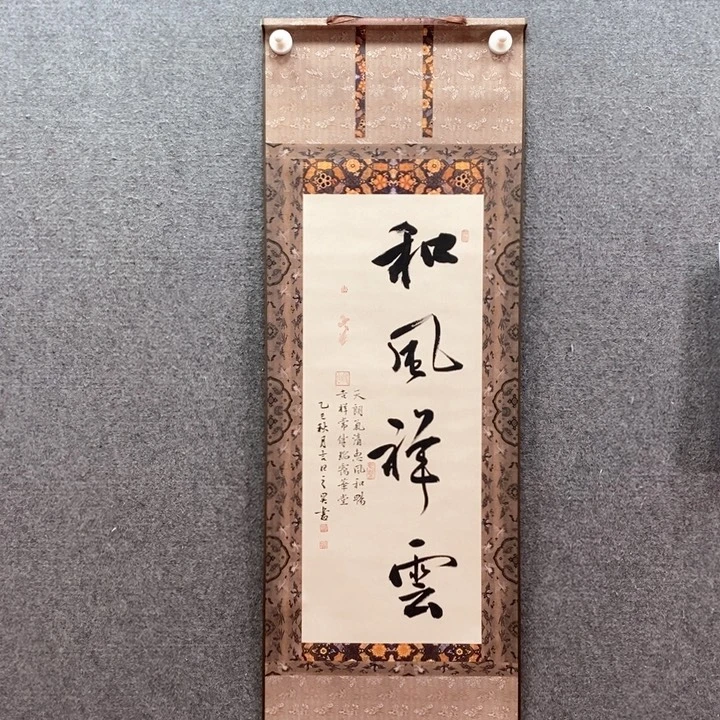 和風祥雲
天朗氣清惠風和暢
吉祥常伴瑞靄華堂
乙巳秋月吉日之昊書